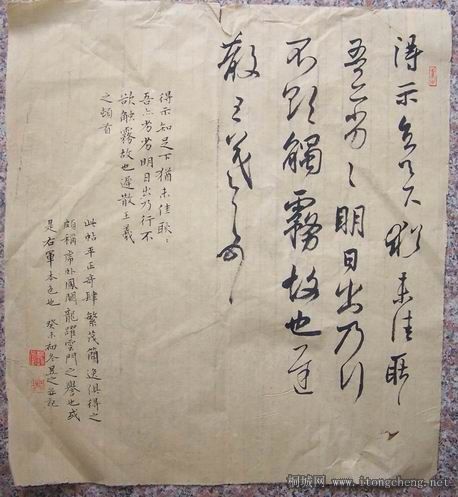 得示知足下猶未佳耿〻
吾亦劣〻明日出乃行
不欲觸霧故也遲
散王羲之頓首
得示知足下猶未佳耿〻
吾亦劣劣明日出乃行不
欲觸霧故也遲散王羲
之頓首
此帖平正奇肆繁茂簡逸俱得之
頗稱虎卧鳳闕龍躍雲門之譽也或
是右軍本色也 癸未初冬昱之並記
桐城网 www.itongcheng.net